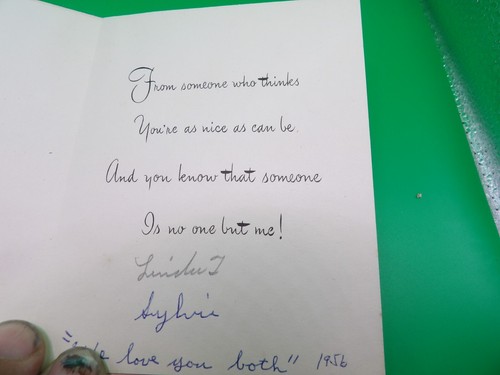 From someone who thinks
You're as nice as can be.
And you know that someone
Is no one but me!
Sylvie
"We love you both" 1956